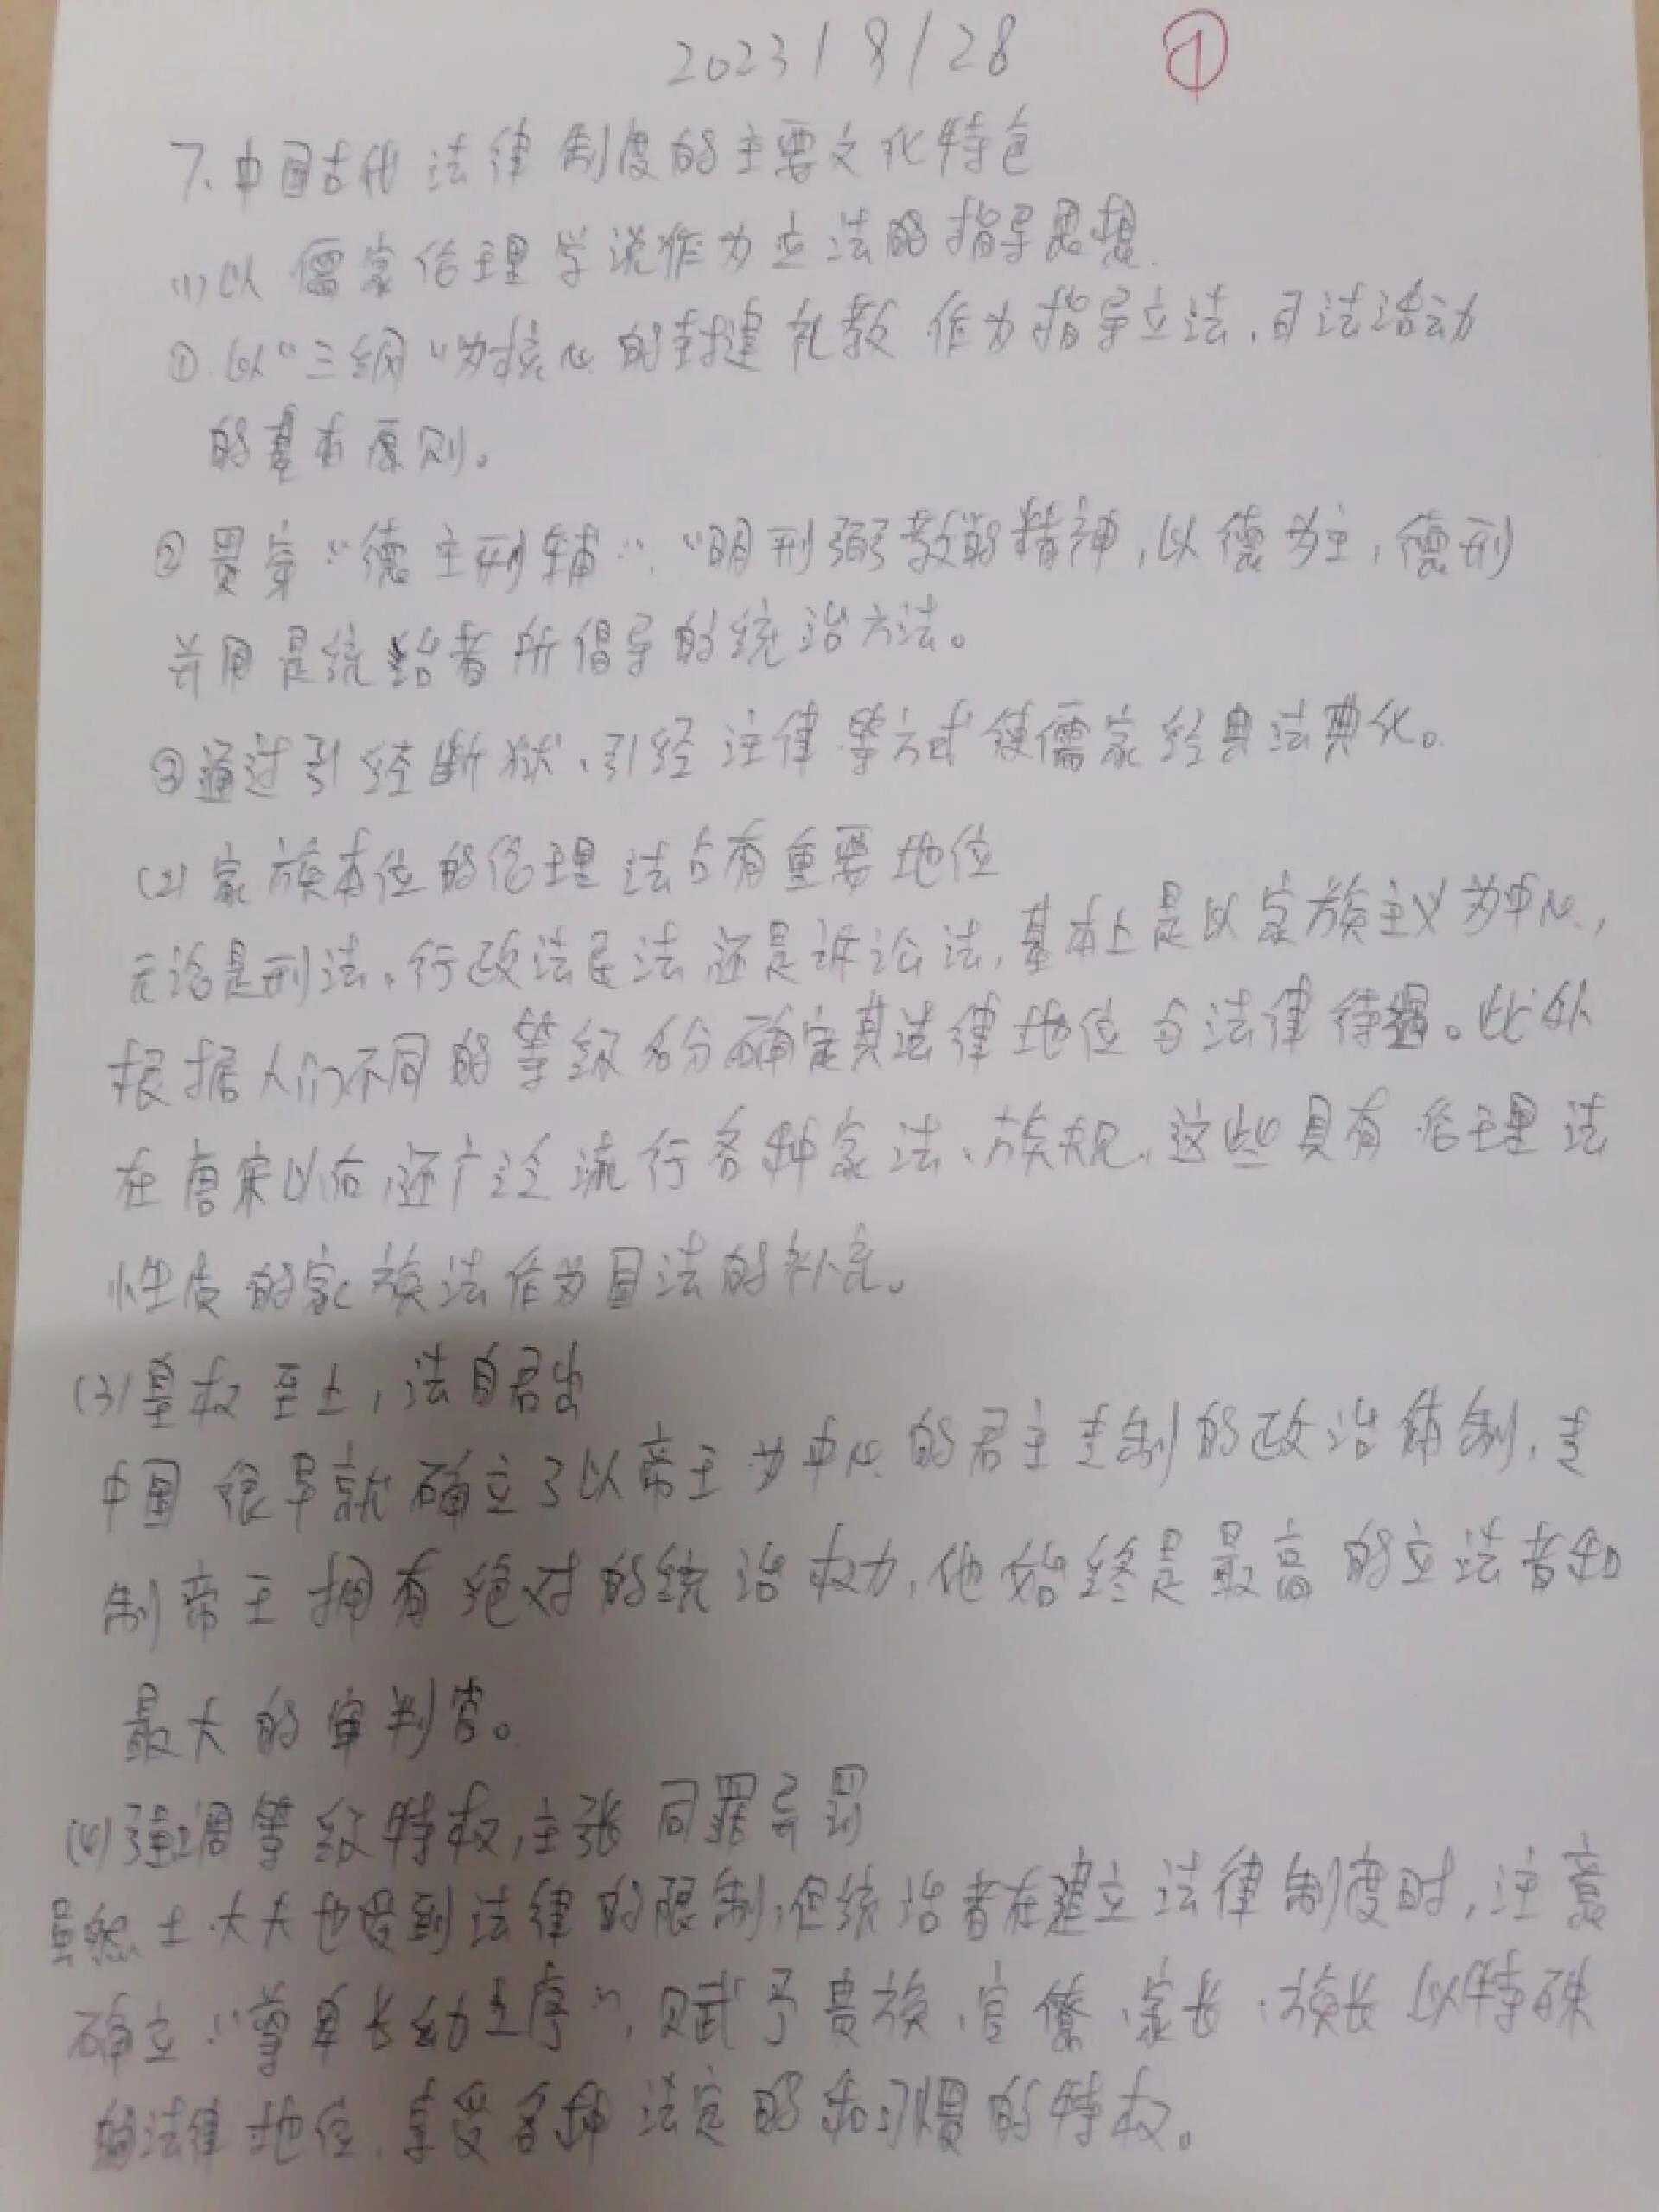 2023/8/28 ①
7、中国古代法律制度的主要文化特色
(1)以儒家伦理学说作为立法的指导思想.
①.以"三纲"为核心的封建礼教作为指导立法、司法活动
的基本原则。
②贯穿"德主刑辅"、"明刑弼教的精神,以德为主,德刑
并用是统治者所倡导的统治方法。
③通过引经断狱、引经注律等方式使儒家经典法典化。
(2)家族本位的伦理法占有重要地位
无论是刑法、行政法民法还是诉讼法,基本上是以家族主义为中心,
根据人们不同的等级名分确定其法律地位与法律待遇。此外
在唐宋以后,还广泛流行各种家法、族规,这些具有伦理法
性质的家族法作为国法的补充。
(3)皇权至上,法自君出
中国很早就确立了以帝王为中心的君主专制的政治体制,专
制帝王拥有绝对的统治权力,他始终是最高的立法者和
最大的审判官。
(4)强调等级特权,主张同罪异罚
虽然士大夫也受到法律的限制,但统治者在建立法律制度时,注意
确立"尊卑长幼之序",赋予贵族、官僚、家长、族长以特殊
的法律地位,享受各种法定的和习惯的特权。